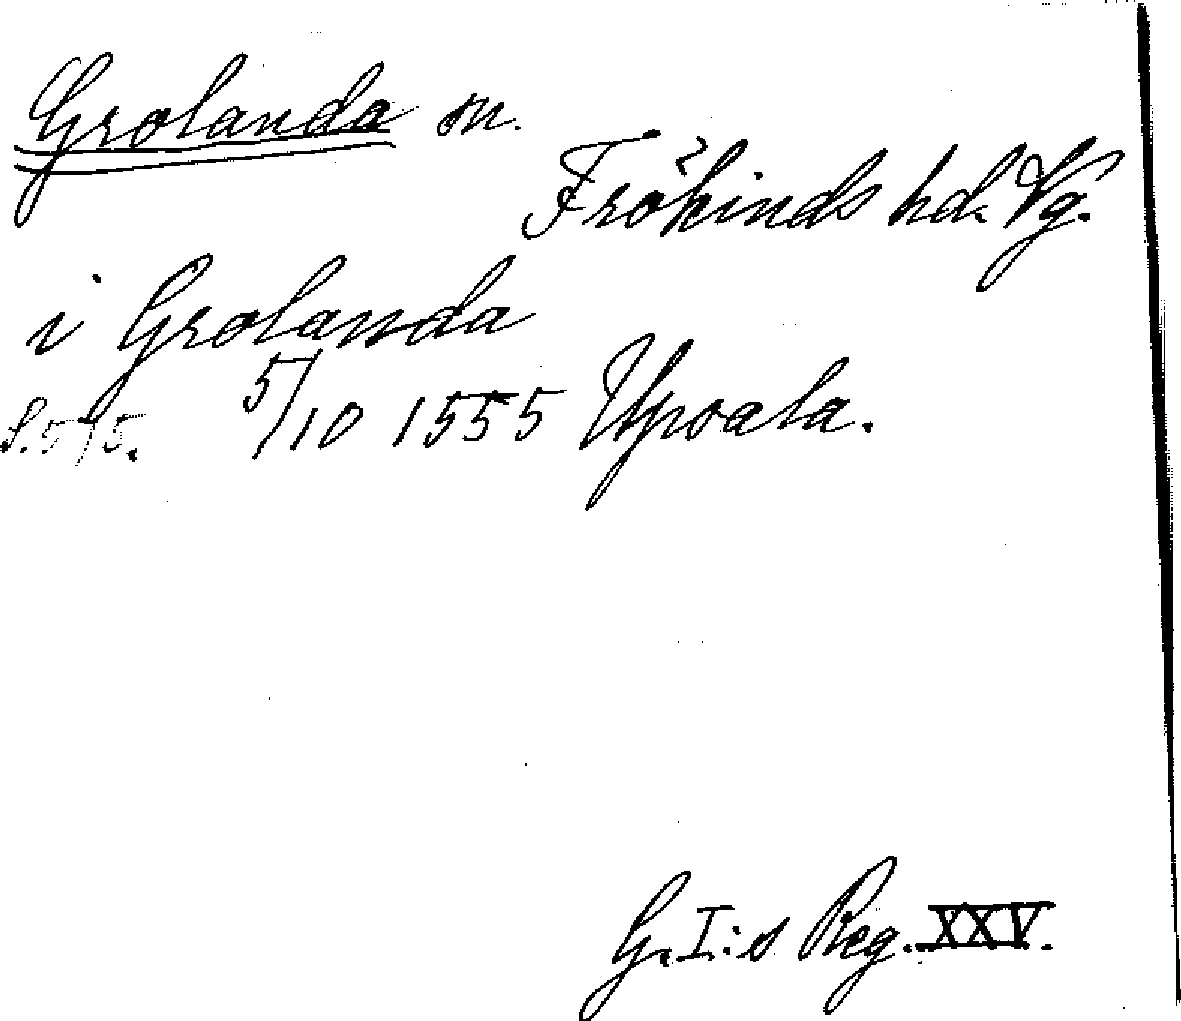 Grolanda sn.
Frökinds hd. Vg.
i Grolanda
S. 575. 5/10 1555 Upsala.
G. I:s Reg. XXV.